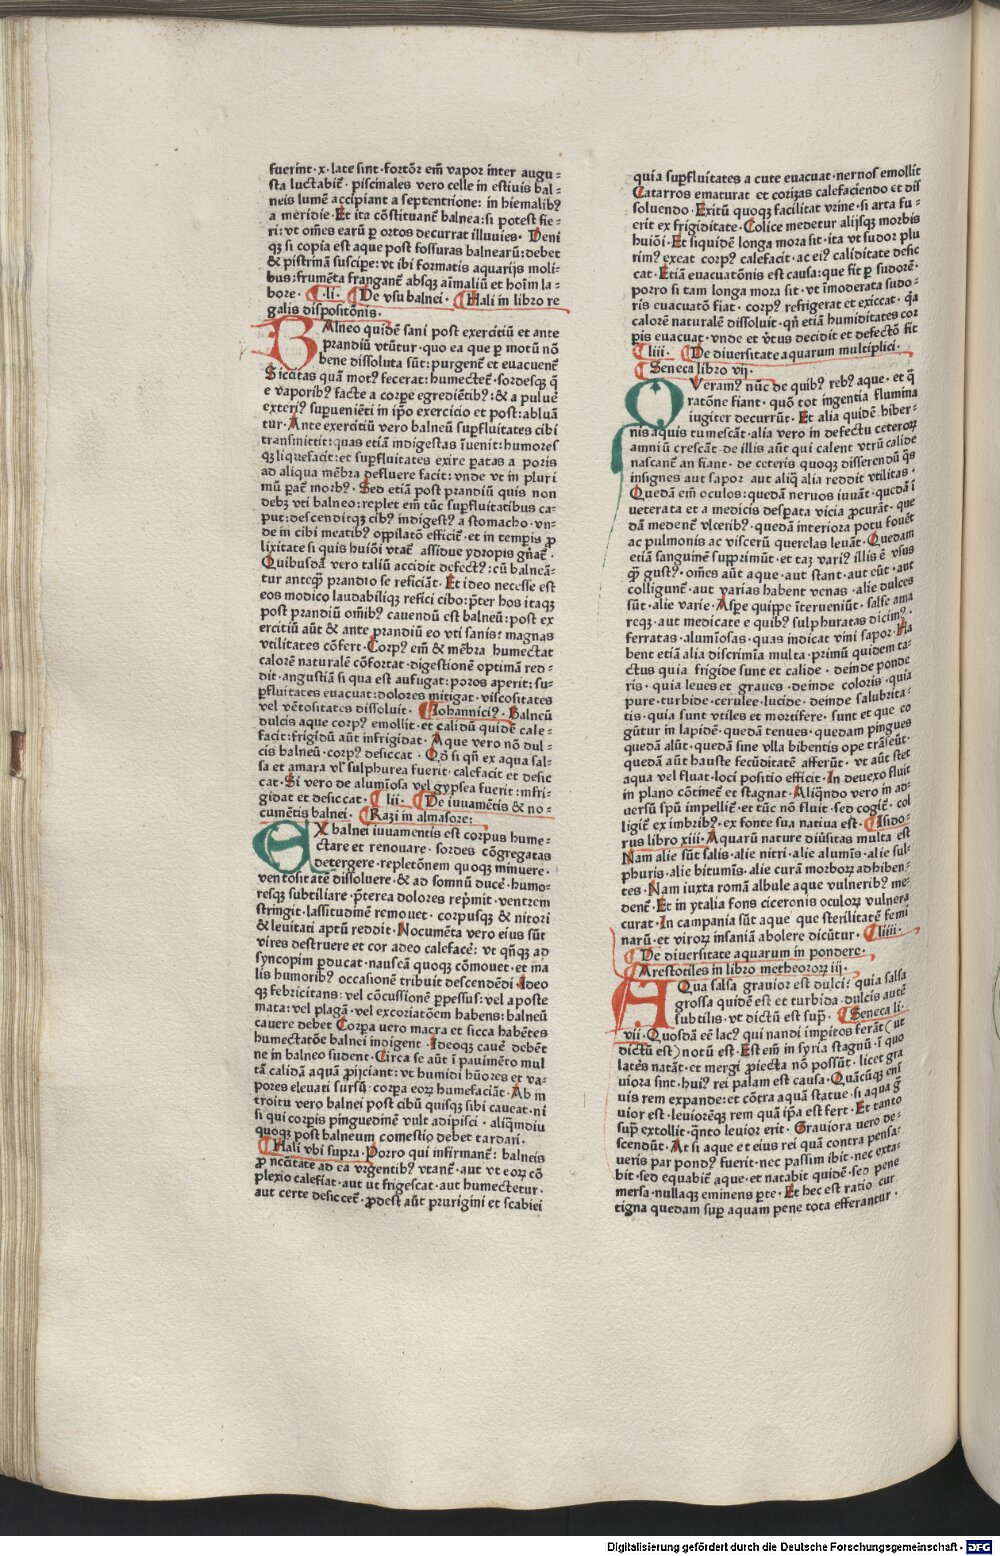 fuerint·x·late sint·fortōr em̄ vapor inter augu⸗
sta luctabit̄·piscinales vero celle in estiuis bal⸗
neis lumē accipiant a septentrione: in hiemalibꝰ
a meridie·Et ita cōstituant̄ balnea: si potest fie⸗
ri: vt om̄es earū ꝑ ortos decurrat illuuies·Deni
qꝫ si copia est aque post fossuras balnearū: debet
& pistrinā suscipe: vt ibi formatis aquarijs moli⸗
bus: frumēta frangant̄ absqꝫ aīmaliū et hoīm la⸗
bore· ¶li· ¶De vsu balnei· ¶Hali in libro re
galis dispositōnis·
BAlneo quidē sani post exercitiū et ante
prandiū vtūtur·quo ea que ꝑ motū nō
bene dissoluta sūt: purgent̄ et euacuent̄
Sicātas quā motꝰ fecerat: humectet̄·sordesqꝫ q̄
e vaporibꝰ facte a corꝑe egrediētibꝰ: & a puluē
exteriꝰ suꝑuenieti in ip̄o exercicio et post: abluā
tur·Ante exercitiū vero balneū suꝑfluitates cibi
transmittit: quas etiā indigestas īuenit: humores
qꝫ liquefacit: et suꝑfluitates exire ꝑatas a poris
ad aliqua mēbra defluere facit: vnde vt in pluri
mū ꝑat̄ morbꝰ·Sed etiā post prandiū quis non
debꝫ vti balneo: replet em̄ tūc suꝑfluitatibus ca⸗
put: descenditqꝫ cibꝰ indigestꝰ a stomacho·vn⸗
de in cibi meatibꝰ oppilatō efficit̄·et in temꝑis ꝓ
lixitate si quis huiōi vtat̄ assidue ydropis gn̄at̄·
Quibusdā vero taliū accidit defectꝰ: cū balneā⸗
tur anteqꝫ prandio se reficiāt·Et ideo necesse est
eos modico laudabiliqꝫ refici cibo: p̄ter hos itaqꝫ
post prandiū om̄ibꝰ cauendū est balneū: post ex
ercitiū aūt & ante prandiū eo vti sanis: magnas
vtilitates cōfert·Corpꝰ em̄ & mēbra humectat
calorē naturalē cōfortat·digestionē optimā red⸗
dit·angustiā si qua est aufugat: poros aperit: su⸗
ꝑfluitates euacuat: dolores mitigat·viscositates
vel vētositates dissoluit· ¶Iohanniciꝰ·Balneū
dulcis aque corpꝰ emollit·et calidū quidē cale⸗
facit: frigidū aūt infrigidat·Aque vero nō dul⸗
cis balneū·corpꝰ desiccat·Qd̄ si qn̄ ex aqua sal⸗
sa et amara vl̓ sulphurea fuerit·calefacit et desic
cat·Si vero de alumīosa vel gypsea fuerit: infri⸗
gidat et desiccat· ¶lii· ¶De iuuamētis & no⸗
cumētis balnei· ¶Razi in almasore:
EX balnei iuuamentis est corpus hume⸗
ctare et renouare·sordes cōgregatas
detergere·repletōnem quoqꝫ minuere·
ventositatē dissoluere·& ad somnū ducē·humo⸗
resqꝫ subtiliare·p̄terea dolores rep̄mit·ventrem
stringit·lassitudinē remouet·corpusqꝫ & nitori
& leuitati aptū reddit·Nocumēta vero eius sūt
vires destruere et cor adeo calefacē: vt qn̄qꝫ ad
syncopim ꝑducat·nauseā quoqꝫ cōmouet·et ma
lis humoribꝰ occasionē tribuit descendēdi·Ideo
qꝫ febricitans·vel cōcussionē ꝑpessus: vel aposte
mata: vel plagā·vel excoriatōem habens: balneū
cauere debet Corpa vero macra et sicca habētes
humectatōe balnei indigent·Ideoqꝫ cauē debēt
ne in balneo sudent·Circa se aūt ī pauimēto mul
tā calidā aquā ꝓijciant: vt humidi hūores et va⸗
pores eleuati sursū: corꝑa eoꝝ humefaciāt·Ab in
troitu vero balnei post cibū quisqꝫ sibi caueat·ni
si qui corꝑis pinguedinē vult adipisci·aliqm̄diu
quoqꝫ post balneum comestio debet tardari·
¶Hali vbi supra·Porro qui infirmant̄: balneis
ꝓ nc̄citate ad ea vrgentibꝰ vtant̄·aut vt eoꝝ cō
plexio calefiat·aut vt frigescat·aut humectetur·
aut certe desiccet̄·ꝓdest aūt pruriginí et scabiei
quia suꝑfluitates a cute euacuat·neruos emollit
Catarros ematurat et corizas calefaciendo et dis
soluendo·Exitū quoqꝫ facilitat vrine·si arta fu⸗
erit ex frigiditate·Colice medetur alijsqꝫ morbis
huiōi·Et siquidē longa mora sit·ita vt sudor plu
rimꝰ exeat corpꝰ calefacit·ac eiꝰ caliditate desic
cat·Etiā euacuatōnis est causa: que fit ꝑ sudorē·
porro si tam longa mora sit·vt īmoderata sudo⸗
ris euacuatō fiat·corpꝰ refrigerat et exiccat·q̄a
calorē naturalē dissoluit·qn̄ etiā humiditates cor
ꝑis euacuat·vnde et v̄tus decidit et defectō fit
¶liii· ¶De diuersitate aquarum multiplici·
¶Seneca libro vij·
OVeramꝰ nūc de quibꝰ rebꝰ aque·et q̄
ratōne fiant·quō tot ingentia flumina
iugiter decurrūt·Et alia quidē hiber⸗
nis aquis tumescāt·alia vero in defectu ceteroꝝ
amniū crescāt·de illis aūt qui calent vtrū calide
nascant̄ an fiant·de ceteris quoqꝫ disserendū q̄s
insignes aut sapor aut aliq̄ alia reddit vtilitas·
Quedā em̄ oculos: quedā neruos iuuāt·quedā ī
ueterata et a medicis desꝑata vicia ꝓcurāt·que
dā medent̄ vlceribꝰ·quedā interiora potu fouēt
ac pulmonis ac viscerū querelas leuāt·Quedam
etiā sanguinē supprimūt·et taꝫ variꝰ illis ē vsus
qꝫ gustꝰ·om̄es aūt aque·aut stant·aut eūt·aut
colligunt̄·aut varias habent venas·alie dulces
sūt·alie varie·Asꝑe quippe īterueniūt·salse ama
reqꝫ·aut medicate e quibꝰ sulphuratas dicimꝰ·
ferratas·alumīosas·quas indicat vini sapor·Ha
bent etiā alia discrimīa multa·primū quidem ta⸗
ctus quia frigide sunt et calide·deinde ponde
ris·quia leues et graues·deinde coloris·quia
pure·turbide·cerulee·lucide·deinde salubrita⸗
tis·quia sunt vtiles et mortifere·sunt et que co
gūtur in lapidē·quedā tenues·quedam pingues
quedā alūt·quedā sine vlla bibentis ope trāseūt·
quedā aūt hauste fecūditatē afferūt·vt aūt stet
aqua vel fluat·loci positio efficit·In deuexo fluit
in plano cōtinet̄ et stagnat·Aliqn̄do vero in ad⸗
versū spū impellit̄·et tūc nō fluit·sed cogit̄·col
ligit̄ ex imbribꝰ·ex fonte sua natiua est· ¶Isido⸗
rus libro xiii·Aquarū nature diūsitas multa est
Nam alie sūt salis·alie nitri·alie alumīs·alie sul⸗
phuris·alie bitumīs·alie curā morboꝝ adhiben⸗
tes·Nam iuxta romā albule aque vulneribꝰ me⸗
dent̄·Et in ytalia fons ciceronis oculoꝝ vulnera
curat·In campania sūt aque que sterilitatē femi
narū·et viroꝝ insaniā abolere dicūtur· ¶liiii·
¶De diuersitate aquarum in pondere·
¶Arestotiles in libro metheoroꝝ iij·
AQua salsa grauior est dulci: quia salsa
grossa quidē est et turbida·dulcis autē
subtilis·vt dictū est sup̄· ¶Seneca li·
vii·Quosdā eē lacꝰ qui nandi imꝑitos ferāt (ut
dictū est) notū est·Est em̄ in syria stagnū·ī quo
latēs natāt·et mergi ꝓiecta nō possūt·licet gra
uiora sint·huiꝰ rei palam est causa·Quācūqꝫ eni
vis rem expande: et cōtra aquā statue·si aqua ḡ
uior est·leuiorēqꝫ rem quā ip̄a est fert·Et tanto
sup̄ extollit·q̄nto leuior erit·Grauiora vero de⸗
scendūt·At si aque et eius rei quā contra pensa⸗
ueris par pondꝰ fuerit·nec passim ibit·nec exta⸗
bit·sed equabit̄ aque·et natabit quidē·sed pene
mersa·nullaqꝫ eminens ꝑte·Et hec est ratio cur
tigna quedam suꝑ aquam pene tota efferantur·
Digitalisierung gefördert durch die Deutsche Forschungsgemeinschaft - DFG